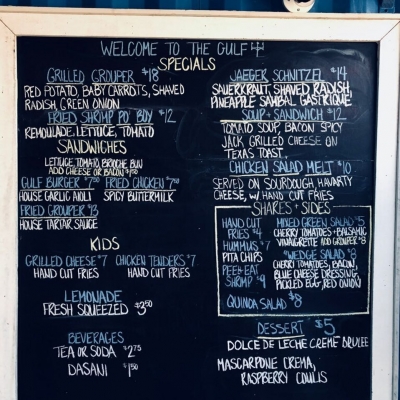 WELCOME TO THE GULF
SPECIALS
GRILLED GROUPER $18
RED POTATO, BABY CARROTS, SHAVED
RADISH, GREEN ONION
FRIED SHRIMP PO' BOY $12
REMOULADE, LETTUCE, TOMATO
SANDWICHES
LETTUCE, TOMATO, BRIOCHE BUN
ADD CHEESE OR BACON $1.50
GULF BURGER $7.00 FRIED CHICKEN $7.00
HOUSE GARLIC AIOLI SPICY BUTTERMILK
FRIED GROUPER $13
HOUSE TARTAR SAUCE
KIDS
GRILLED CHEESE $7 CHICKEN TENDERS $7
HAND CUT FRIES HAND CUT FRIES
LEMONADE
FRESH SQUEEZED $3.50
BEVERAGES
TEA OR SODA $2.75
DASANI $1.50
JAEGER SCHNITZEL $14
SAUERKRAUT, SHAVED RADISH,
PINEAPPLE SAMBAL GASTRIQUE
SOUP + SANDWICH $12
TOMATO SOUP, BACON SPICY
JACK GRILLED CHEESE ON
TEXAS TOAST.
CHICKEN SALAD MELT $10
SERVED ON SOURDOUGH HAVARTY
CHEESE, W/ HAND CUT FRIES
SHARES + SIDES
HAND CUT
FRIES $4
HUMMUS $7
PITA CHIPS
PEEL + EAT
SHRIMP $9
QUINOA SALAD $8
MIXED GREEN SALAD $5
CHERRY TOMATOES + BALSAMIC
VINAIGRETTE ADD GROUPER $8
WEDGE SALAD $8
CHERRY TOMATOES, BACON,
BLUE CHEESE DRESSING,
PICKLED EGG, RED ONION
DESSERT $5
DOLCE DE LECHE CREME BRULEE
MASCARPONE CREMA,
RASPBERRY COULIS